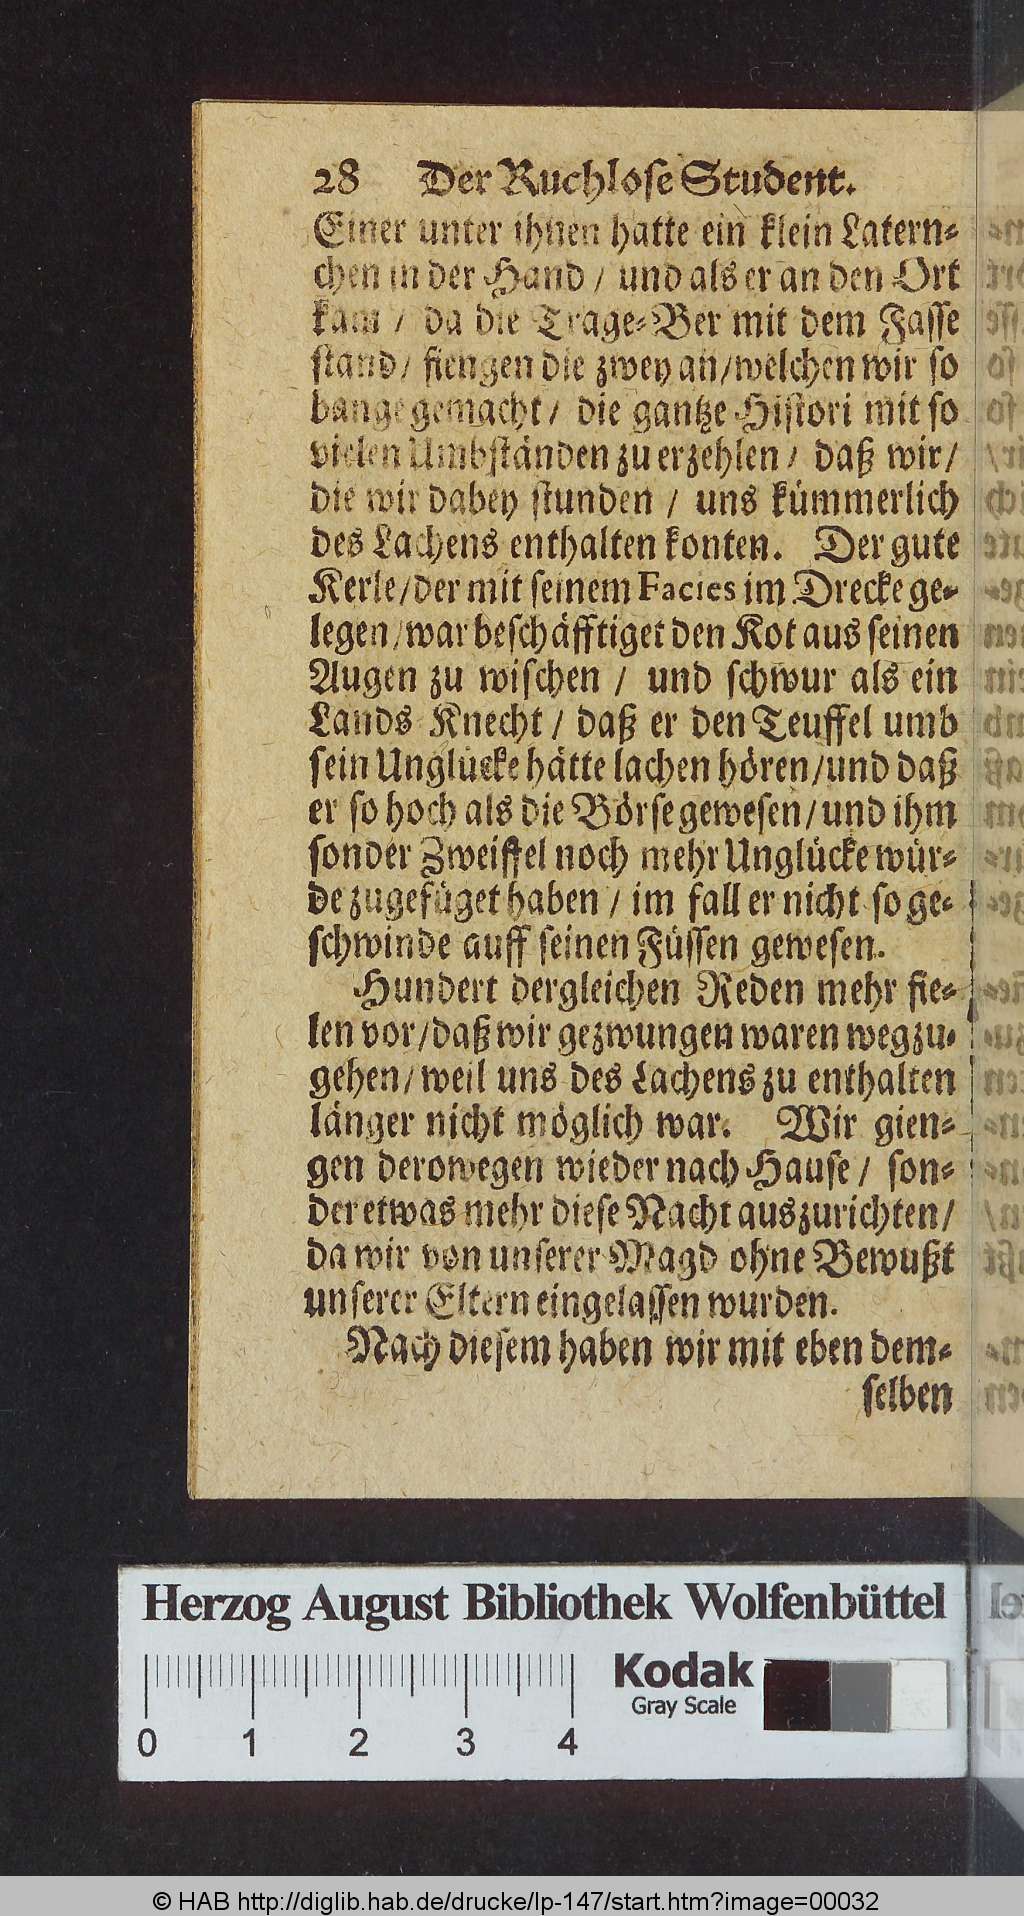 28 Der Ruchlose Student.
Einer unter ihnen hatte ein klein Latern-
chen in der Hand / und als er an den Ort
kam / da die Trage-Ber mit dem Fasse
stand / fiengen die zwey an / welchen wir so
bange gemacht / die gantze Histori mit so
vielen Umbständen zu erzehlen / daß wir /
die wir dabey stunden / uns kümmerlich
des Lachens enthalten konten. Der gute
Kerle / der mit seinem Facies im Drecke ge-
legen / war beschäfftiget den Kot aus seinen
Augen zu wischen / und schwur als ein
Lands Knecht / daß er den Teuffel umb
sein Unglücke hätte lachen hören / und daß
er so hoch als die Börse gewesen / und ihm
sonder Zweiffel noch mehr Unglücke wür-
de zugefüget haben / im fall er nicht so ge-
schwinde auff seinen Füssen gewesen.
Hundert dergleichen Reden mehr fie-
len vor / daß wir gezwungen waren wegzu-
gehen / weil uns des Lachens zu enthalten
länger nicht möglich war. Wir gien-
gen derowegen wieder nach Hause / son-
der etwas mehr diese Nacht auszurichten /
da wir von unserer Magd ohne Bewußt
unserer Eltern eingelassen wurden.
Nach diesem haben wir mit eben dem-
selben
Herzog August Bibliothek Wolfenbüttel
Kodak
Gray Scale
0 1 2 3 4
© HAB http://diglib.hab.de/drucke/lp-147/start.htm?image=00032